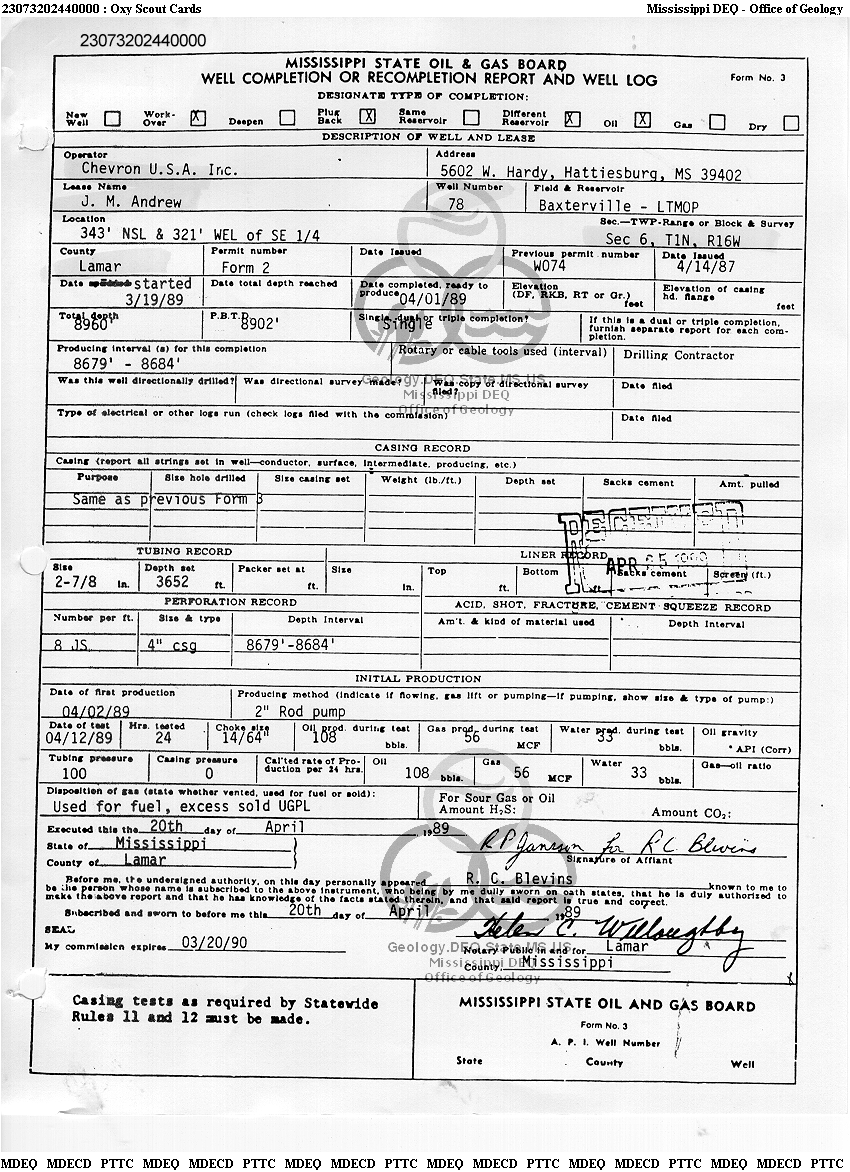 23073202440000 : Oxy Scout Cards Mississippi DEQ - Office of Geology
23073202440000
MISSISSIPPI STATE OIL & GAS BOARD
WELL COMPLETION OR RECOMPLETION REPORT AND WELL LOG Form No. 3
DESIGNATE TYPE OF COMPLETION:
New Well Work-Over X Deepen Plug Back X Same Reservoir Different Reservoir X Oil X Gas Dry
DESCRIPTION OF WELL AND LEASE
Operator Address
Chevron U.S.A. Inc. 5602 W. Hardy, Hattiesburg, MS 39402
Lease Name Well Number Field & Reservoir
J. M. Andrew 78 Baxterville - LTMOP
Location Sec.—TWP-Range or Block & Survey
343' NSL & 321' WEL of SE 1/4 Sec 6, T1N, R16W
County Permit number Date Issued Previous permit number Date Issued
Lamar Form 2 W074 4/14/87
Date started Date total depth reached Date completed, ready to produce Elevation (DF, RKB, RT or Gr.) feet Elevation of casing hd. flange feet
3/19/89 04/01/89
Total depth P.B.T.D. Single, dual or triple completion? If this is a dual or triple completion, furnish separate report for each completion.
8960' 8902' Single
Producing interval (s) for this completion Rotary or cable tools used (interval) Drilling Contractor
8679' - 8684'
Was this well directionally drilled? Was directional survey made? Was copy of directional survey filed? Date filed
Geology.DEQ.State.MS.US
Mississippi DEQ
Office of Geology
Type of electrical or other logs run (check logs filed with the commission) Date filed
CASING RECORD
Casing (report all strings set in well—conductor, surface, intermediate, producing, etc.)
Purpose Size hole drilled Size casing set Weight (lb./ft.) Depth set Sacks cement Amt. pulled
Same as previous Form 3
RECEIVED
APR 25
TUBING RECORD LINER RECORD
Size Depth set Packer set at Size Top Bottom Sacks cement Screen (ft.)
2-7/8 in. 3652 ft. ft. in. ft.
PERFORATION RECORD ACID, SHOT, FRACTURE, CEMENT SQUEEZE RECORD
Number per ft. Size & type Depth Interval Am't. & kind of material used Depth Interval
8 JS 4" csg 8679'-8684'
INITIAL PRODUCTION
Date of first production Producing method (indicate if flowing, gas lift or pumping—if pumping, show size & type of pump:)
04/02/89 2" Rod pump
Date of test Hrs. tested Choke size Oil prod. during test Gas prod. during test Water prod. during test Oil gravity
04/12/89 24 14/64" 108 bbls. 56 MCF 33 bbls. ° API (Corr)
Tubing pressure Casing pressure Cal'ted rate of Production per 24 hrs. Oil Gas Water Gas—oil ratio
100 0 108 bbls. 56 MCF 33 bbls.
Disposition of gas (state whether vented, used for fuel or sold): For Sour Gas or Oil
Used for fuel, excess sold UGPL Amount H2S: Amount CO2:
Executed this the 20th day of April 1989
State of Mississippi } R P Janssen for R C Blevins
County of Lamar Signature of Affiant
Before me, the undersigned authority, on this day personally appeared R. C. Blevins known to me to
be the person whose name is subscribed to the above instrument, who being by me dully sworn on oath states, that he is duly authorized to
make the above report and that he has knowledge of the facts stated therein, and that said report is true and correct.
Subscribed and sworn to before me this 20th day of April 1989
SEAL Helen C. Willoughby
My commission expires 03/20/90 Notary Public in and for Lamar
County, Mississippi
Geology.DEQ.State.MS.US
Mississippi DEQ
Office of Geology
Casing tests as required by Statewide
Rules 11 and 12 must be made.
MISSISSIPPI STATE OIL AND GAS BOARD
Form No. 3
A. P. I. Well Number
State County Well
MDEQ MDECD PTTC MDEQ MDECD PTTC MDEQ MDECD PTTC MDEQ MDECD PTTC MDEQ MDECD PTTC MDEQ MDECD PTTC